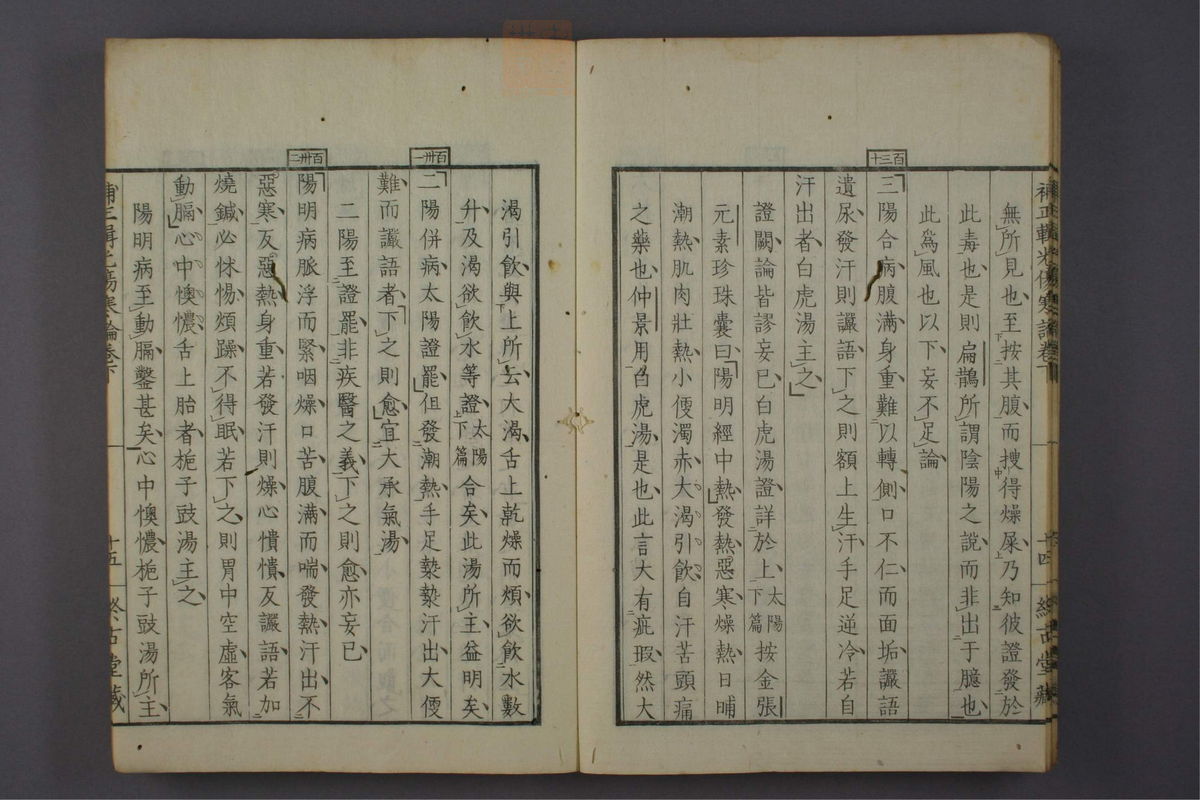 無所見也至按其腹而搜得燥屎乃知彼證發於
此毒也是則扁鵲所謂陰陽之說而非出于臆也
此為風也以下妄不足論
百三十
三陽合病腹滿身重難以轉側口不仁而面垢讝語
遺尿發汗則讝語下之則額上生汗手足逆冷若自
汗出者白虎湯主之
證闕論皆謬妄已白虎湯證詳於上太陽下篇按金張
元素珍珠囊曰陽明經中熱發熱惡寒燥熱日晡
潮熱肌肉壯熱小便濁赤大渴引飲自汗苦頭痛
之藥也仲景用白虎湯是也此言大有疵瑕然大
十四
渴引飲與上所云大渴舌上乾燥而煩欲飲水數
升及渴欲飲水等證太陽上下篇合矣此湯所主益明矣
百卅一
二陽併病太陽證罷但發潮熱手足漐漐汗出大便
難而讝語者下之則愈宜大承氣湯
二陽至證罷非疾醫之義下之則愈亦妄已
百卅二
陽明病脈浮而緊咽燥口苦腹滿而喘發熱汗出不
惡寒反惡熱身重若發汗則燥心憒憒反讝語若加
燒鍼必怵惕煩躁不得眠若下之則胃中空虛客氣
動膈心中懊憹舌上胎者梔子豉湯主之
陽明病至動膈鑿甚矣心中懊憹梔子豉湯所主
十五